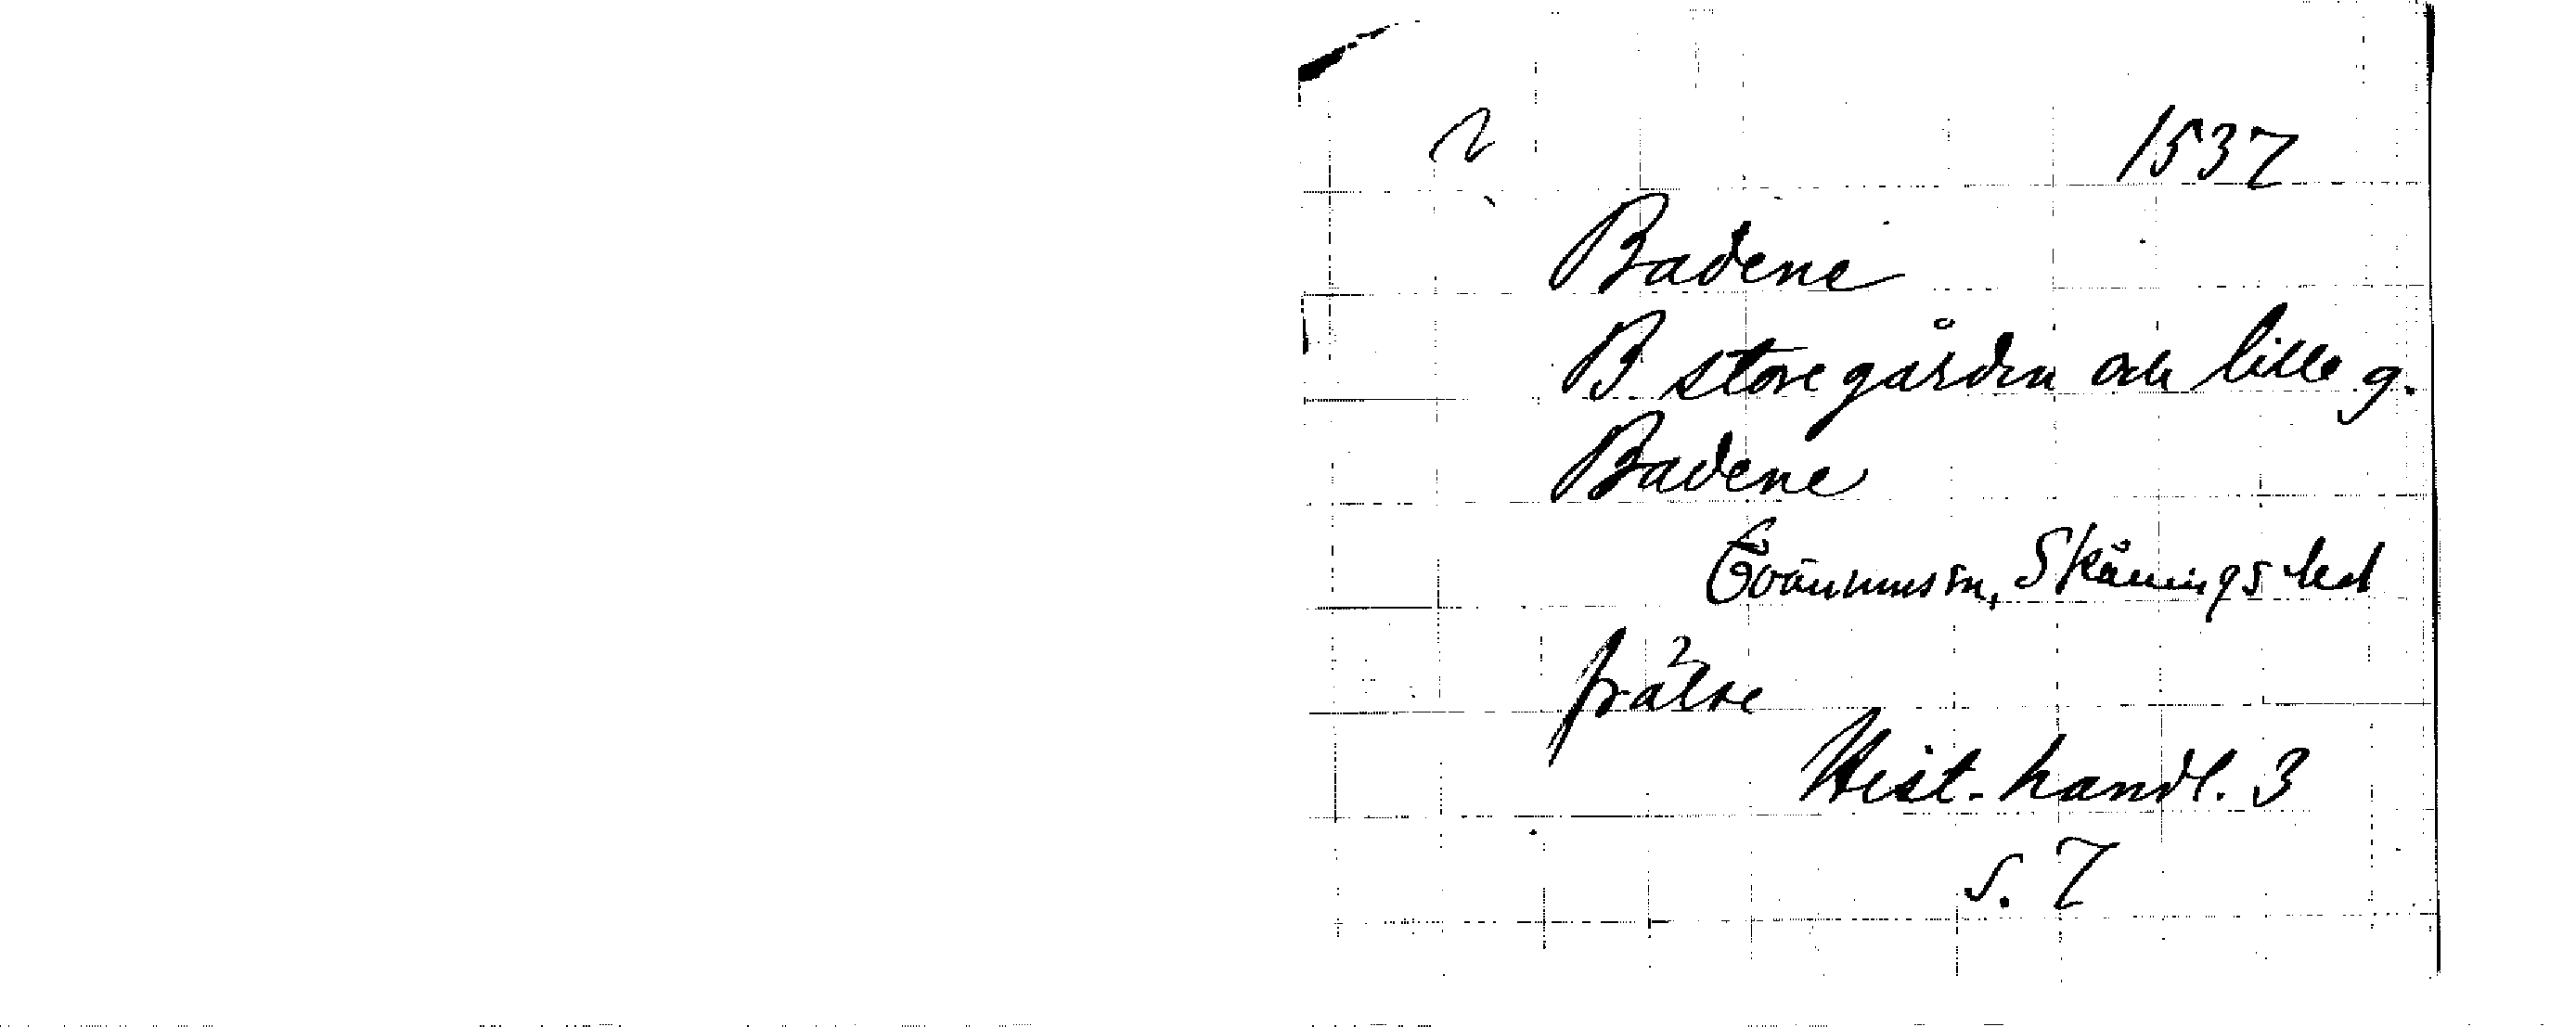 1537
Badene
B storegården och lille g.
Badene
Tvänumsn, Skånings hd
frälse
Hist. handl. 3
s. 7